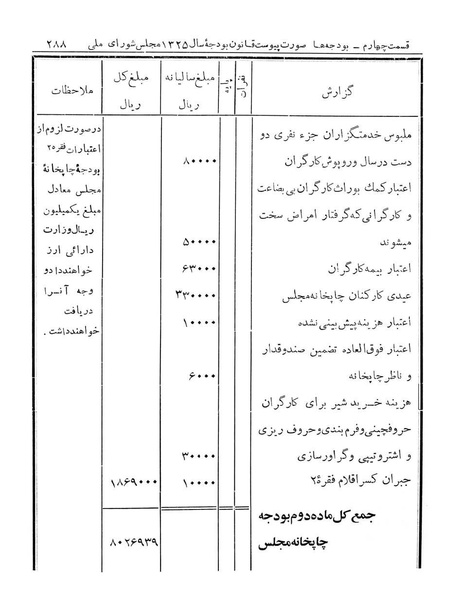 قسمت چهارم - بودجه‌ها صورت پیوست قانون بودجهٔ سال ۱۳۲۵ مجلس شورای ملی ۲۸۸
گزارش نفرات پایه مبلغ سالیانه ریال مبلغ کل ریال ملاحظات
ملبوس خدمتگزاران جزء نفری دو
دست در سال و روپوش کارگران ۸۰۰۰۰
اعتبار کمک بوراث کارگران بی بضاعت
و کارگرانی که گرفتار امراض سخت
میشوند ۵۰۰۰۰
اعتبار بیمه کارگران ۶۳۰۰۰
عیدی کارکنان چاپخانه مجلس ۳۳۰۰۰۰
اعتبار هزینه پیش بینی نشده ۱۰۰۰۰
اعتبار فوق العاده تضمین صندوقدار
و ناظر چاپخانه ۶۰۰۰
هزینه خرید شیر برای کارگران
حروفچینی و فرم بندی و حروف ریزی
و اشتروتیپی و گراورسازی ۳۰۰۰۰
جبران کسر اقلام فقرهٔ ۲ ۱۰۰۰۰ ۱۸۶۹۰۰۰
جمع کل ماده دوم بودجه
چاپخانه مجلس ۸۰۲۶۹۳۹
در صورت لزوم از
اعتبارات فقره ۲
بودجهٔ چاپخانهٔ
مجلس معادل
مبلغ یکمیلیون
ریال وزارت
دارائی ارز
خواهند داد و
وجه آنرا
دریافت
خواهند داشت .